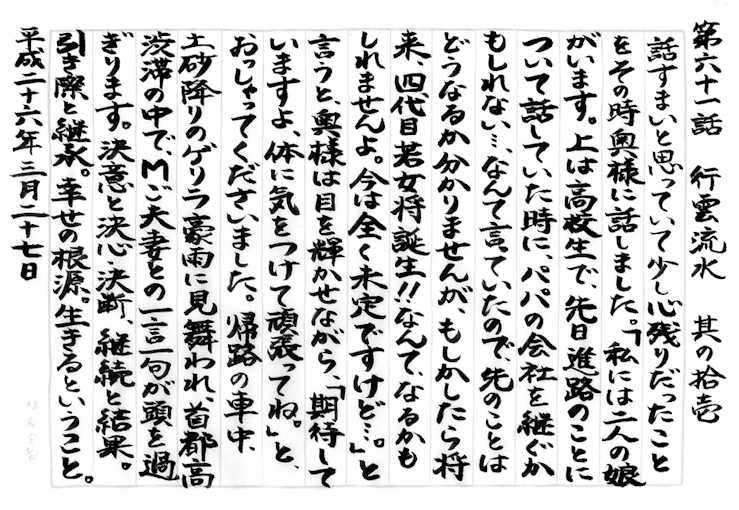 第六十一話　行雲流水　其の拾壱
話すまいと思っていて少し心残りだったこと
をその時奥様に話しました。「私には二人の娘
がいます。上は高校生で、先日進路のことに
ついて話していた時に、パパの会社を継ぐか
もしれない…、なんて言っていたので、先のことは
どうなるか分かりませんが、もしかしたら将
来、四代目若女将誕生!!なんて、なるかも
しれませんよ。今は全く未定ですけど…。」と
言うと、奥様は目を輝かせながら、「期待して
いますよ、体に気をつけて頑張ってね。」と、
おっしゃってくださいました。帰路の車中、
土砂降りのゲリラ豪雨に見舞われ、首都高
渋滞の中で、Mご夫妻との一言一句が頭を過
ぎります。決意と決心、決断、継続と結果。
引き際と継承。幸せの根源。生きるということ。
平成二十六年三月二十七日